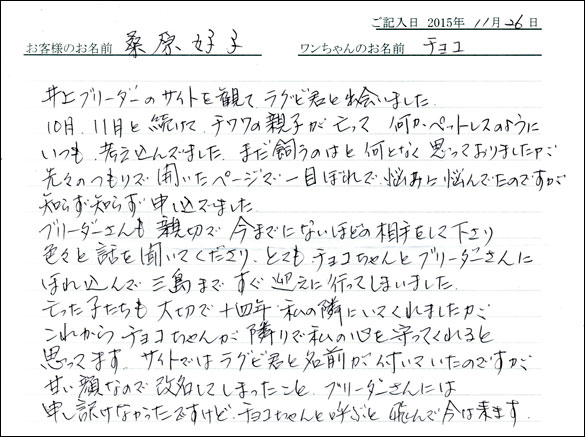 ご記入日 2015年 11月 26日
お客様のお名前 桑原好子 ワンちゃんのお名前 チョコ
井上ブリーダーのサイトを観て、ラグビ君と出会いました。
10月、11月と続けて、チワワの親子が亡って 何かペットレスのように
いつも、考え込んでました。まだ飼うのはと何となく思っておりましたが
先々のつもりで 開いたページで一目ぼれで、悩みに悩んでたのですが
知らず知らず 申し込んでました
ブリーダーさんも 親切で 今までにないほどの 相手をして下さり
色々と話を聞いてくださり、とても チョコちゃんとブリーダーさんに
ほれ込んで 三島まで すぐ迎えに行ってしまいました。
亡った子たちも 大切で 十四年 私の隣にいてくれましたが、
これから チョコちゃんが 隣りで私の心を守ってくれると
思ってます。サイトではラグビ君と名前が付いていたのですが、
甘い顔なので改名してしまったこと、ブリーダーさんには
申し訳けなかったですけど、チョコちゃんと呼ぶと 飛んで今は来ます。